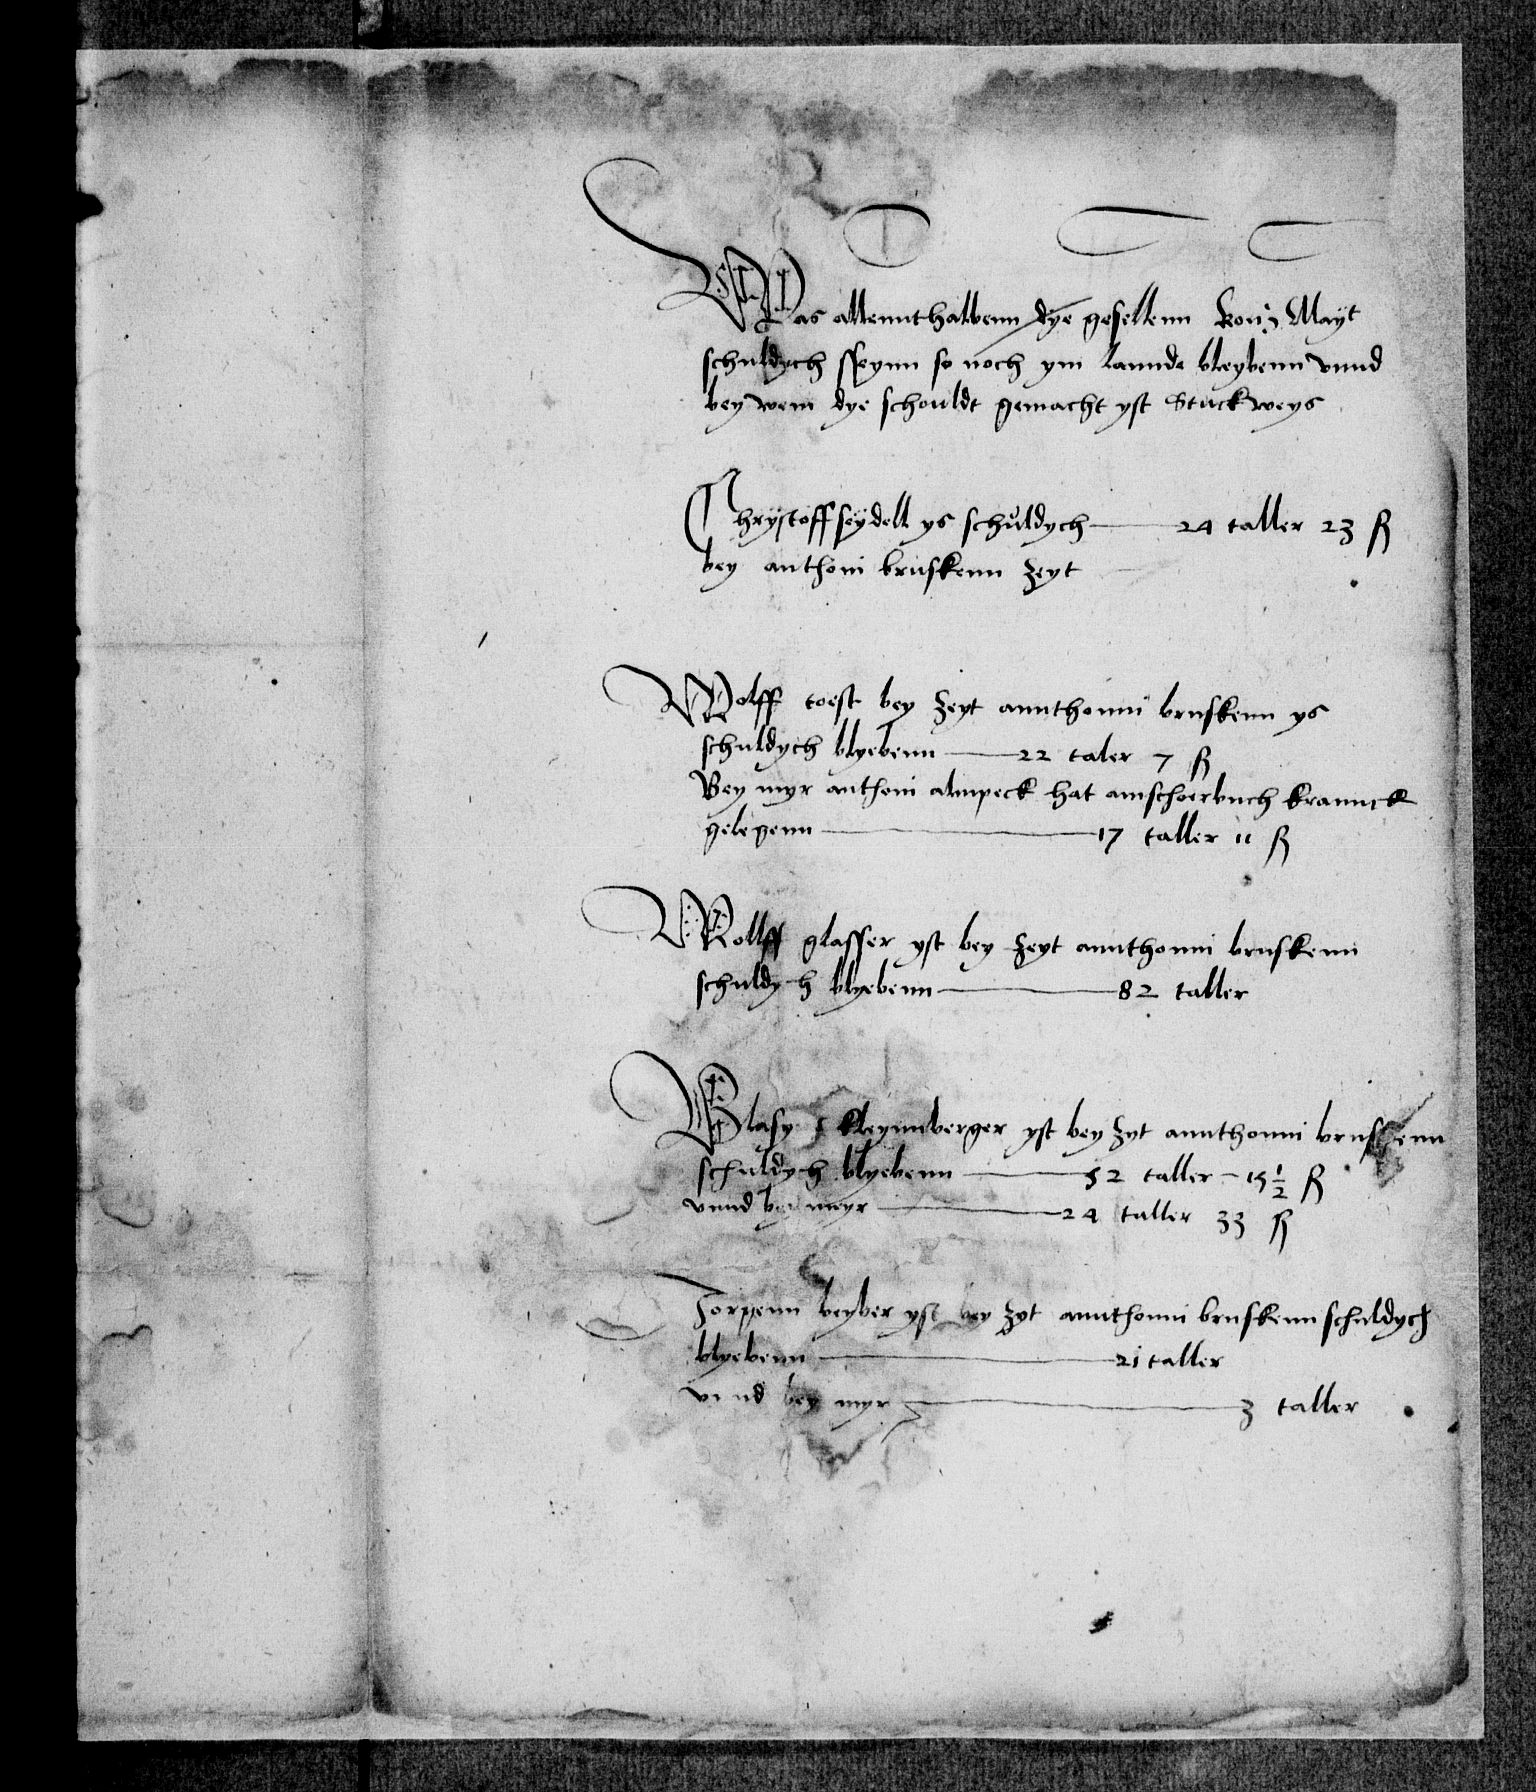 Was allennthalbenn dye gesellenn kon: Mayt
schuldych sseynn so noch ym lannde bleybenn vnnd
bey wem dye schouldt gemacht yst Stuckweys
Chrystoff seydell ys schuldych — 24 taller 23 ß
bey anthoni bruskenn zeyt
Wolff toest bey zeyt annthonni bruskenn ys
schuldych blyebenn — 22 taler 7 ß
Bey myr anthoni almpeck hat amschoerbuch krannck
gelegenn — 17 taller 11 ß
Wollff glasser yst bey zeyt annthonni bruskenn
schuldych blyebenn — 82 taller
Blasy kleynnberger yst bey zyt annthonni bruskenn
schuldych blyebenn — 52 taller – 15 1/2 ß
vnnd bey meyr — 24 taller 33 ß
Jorgenn beyber yst bey zyt annthonni bruskenn schuldych
blyebenn — 21 taller
vnnd bey myr — 3 taller